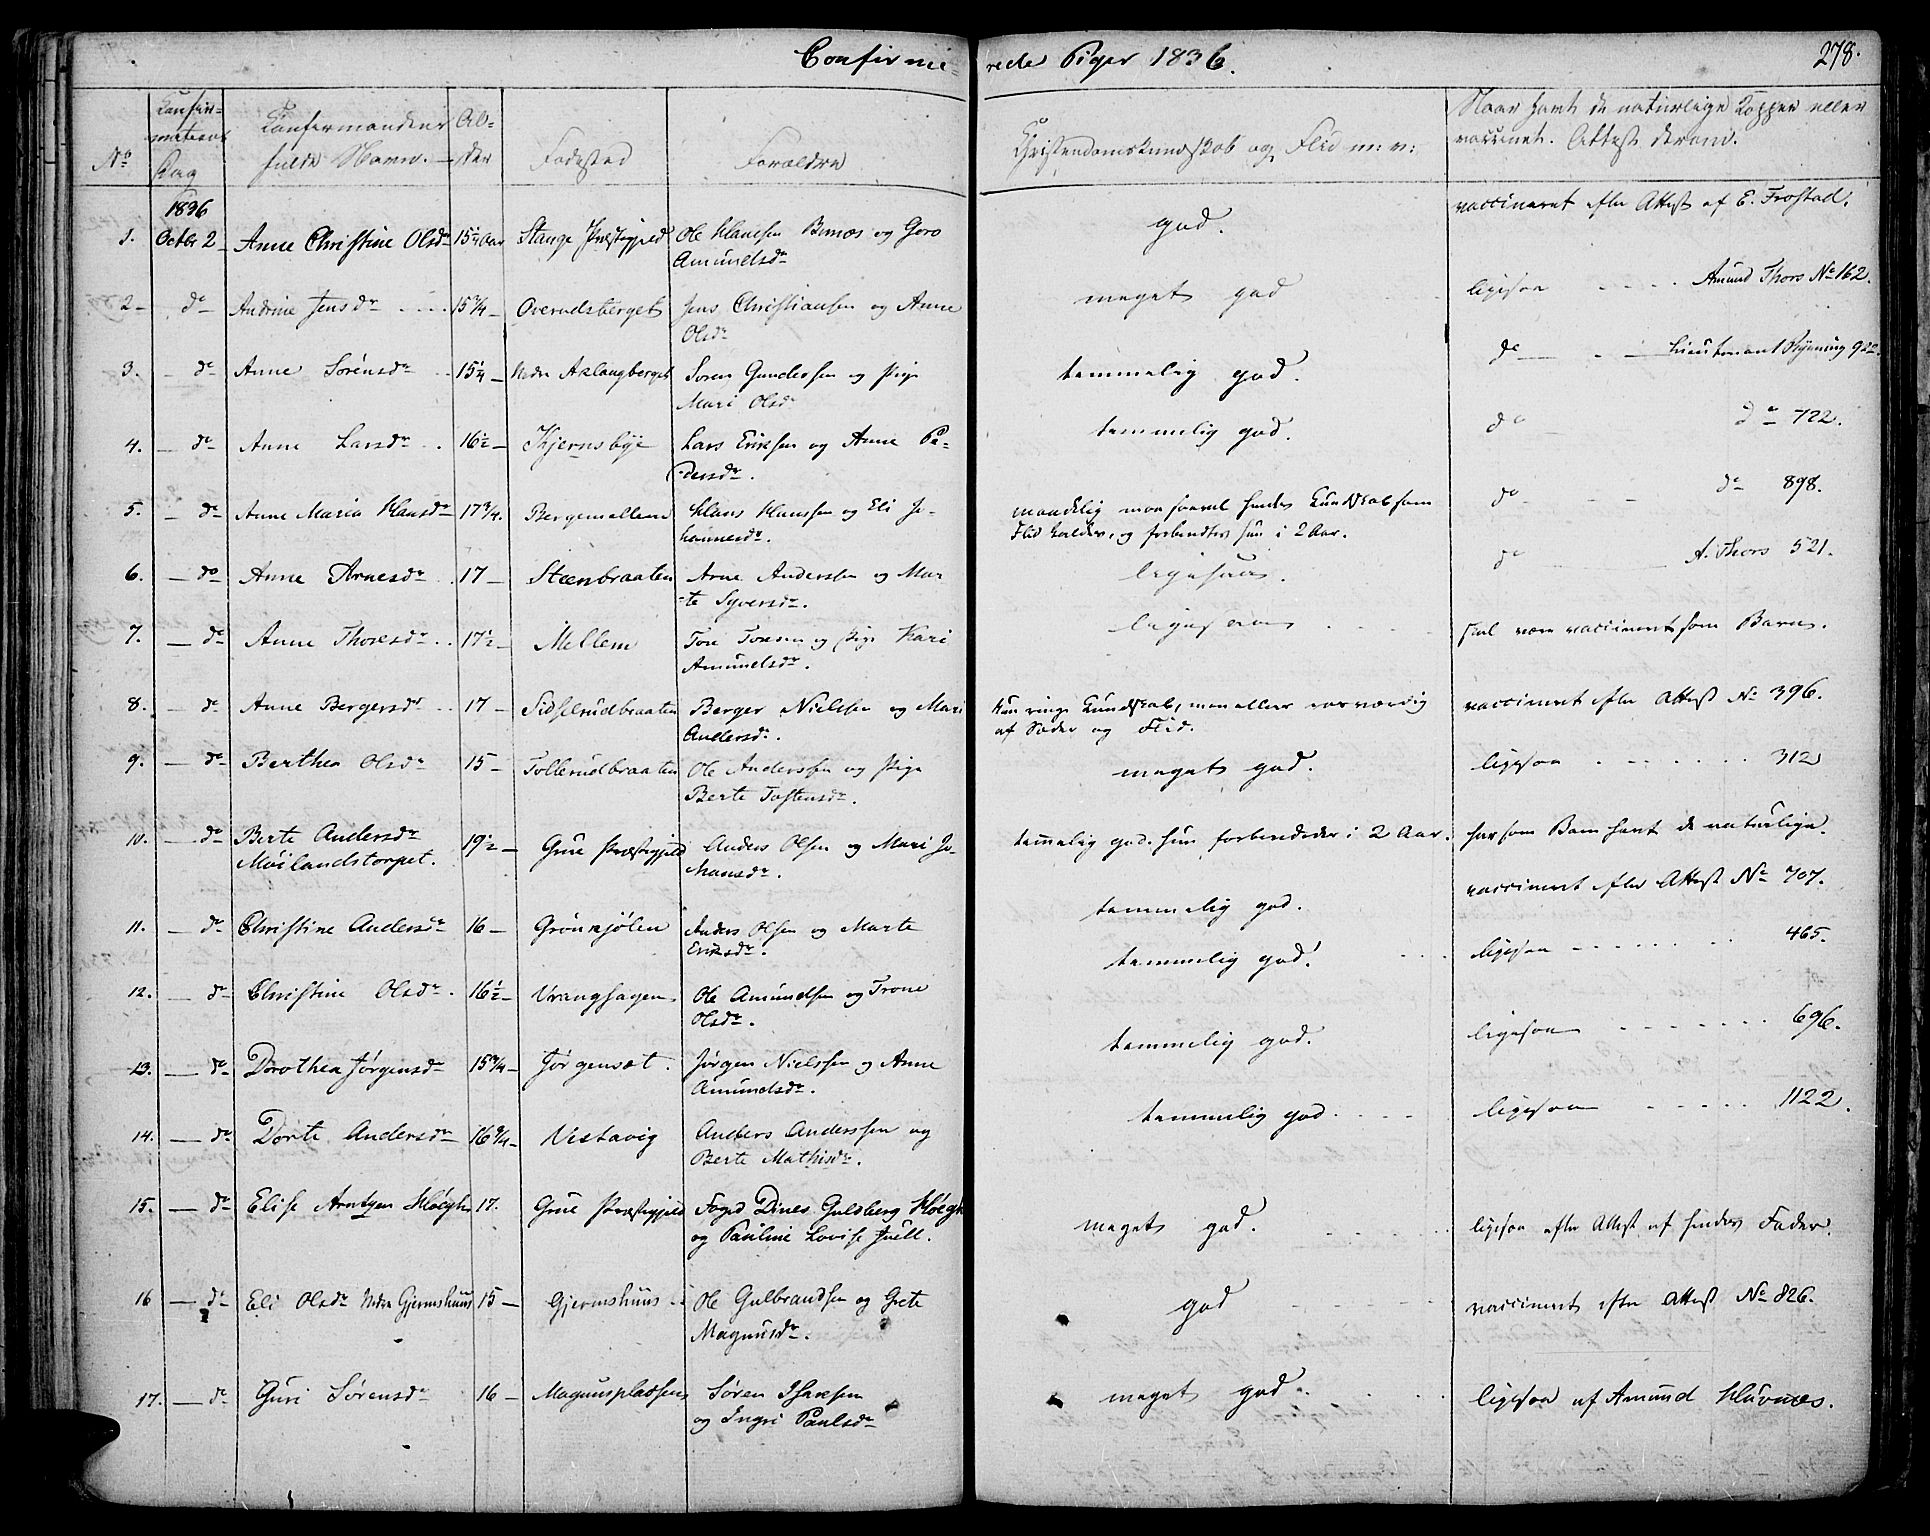 Confirmerede Piger 1836.
278.
No
Confirmations Dag
Confirmandens fulde Navn.
Alder
Fødested
Forældre
Christendomskundskab og Flid m: v:
Naar havt de naturlige Kopper eller vaccineret. Attest derom.
1. 1836 Octbr 2 Anne Christine Olsdr 15 1/4 Aar Stange Præstegjeld Ole Hansen og Goro Amundsdr god. vaccineret efter Attest af E. Frostad.
2 - do Andrine Jensdr 15 3/4 Overudsberget Jens Christiansen og Anne Olsdr meget god ligesaa Amund Thors No 162.
3. - do Anne Sørensdr 15 1/4 Nedre Aslangberget Soren Gundersen og Pige Mari Olsdr temmelig god. do Lieutenant Ryning 922.
4. - do Anne Larsdr 16 1/2 Kjernsbye Lars Eriksen og Anne Pedersdr. temmelig god. do do 722.
5. - do Anne Maria Hansdr 17 3/4. Bergemellem Hans Hanssen og Eli Johannesdr. maadelig maa saavel hendes Kundskab som Flid kaldes, og forberedtes hun i 2 Aar. do do 898.
6. - do Anne Arnesdr 17 Steenbraaten Arne Anderssen og Marte Syversdr. ligesaa. do A. Thors 521.
7. - do Anne Thoresdr 17 1/2 Mellem Tore Toresen og Pige Kari Amundsdr. ligesaa skal være vaccineret som Barn.
8. - do Anne Bergersdr 17 Sidselrudbraaten Berger Nielsen og Mari Andersdr. Kun ringe Kundskab, men ellers rosværdig af Sæder og Flid. vaccineret efter Attest No 396.
9. - do Berthea Olsdr 15 Tollerudbraaten Ole Anderssen og Pige Berte Tostensdr. meget god. ligesaa 312
10. - do Berte Andersdr Møilandstorpet. 19 1/2 Grue Præstegjeld Anders Olsen og Mari Johansdr. temmelig god. hun forberededes i 2 Aar. har som Barn havt de naturlige.
11. - do Christine Andersdr 16 Grønkjølen Anders Olsen og Marte Eriksdr. temmelig god. vaccineret efter Attest No 707.
12. - do Christine Olsdr. 16 1/2 Vranghagen Ole Amundsen og Trone Olsdr. temmelig god! ligesaa 465.
13. - do Dorthea Jørgensdr 15 3/4 Jørgensæt. Jørgen Nielssen og Anne Amundsdr. temmelig god. ligesaa 696.
14. - do Dorte Andersdr 16 3/4 Vestavig Anders Anderssen og Berte Mathisdr. temmelig god. ligesaa 1122.
15. - do Elise Arntzen Høegh 17. Grue Præstegjeld Foged Dines Guldberg Høegh og Pauline Lovise Juell. meget god. ligesaa efter Attest af hendes Fader.
16 - do Eli Olsdr Nedre Gjermshuus 15 Gjermshuus Ole Gulbrandsen og Grete Magnusdr. god vaccineret efter Attest No 826.
17. - do Guri Sørensdr 16 Magnuspladsen Søren Isaksen og Ingri Paulsdr meget god. ligesaa af Amund Huvnes.